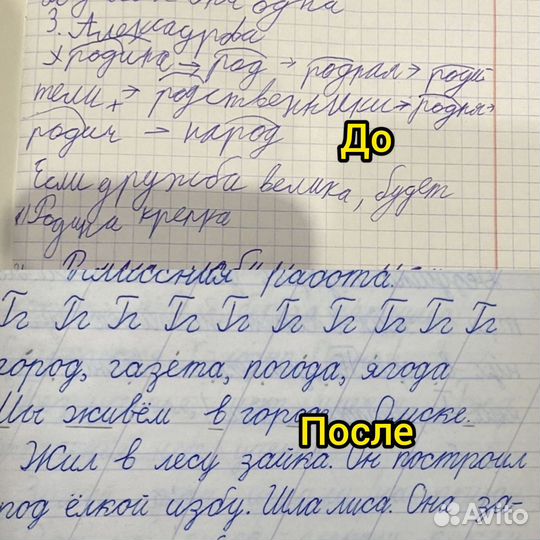 одна
3. Александрова
Родина → род → родная → роди-
тели → родственники → родня →
родич → народ
До
Если дружба велика, будет
Родина крепка
Классная работа.
Гг Гг Гг Гг Гг Гг Гг Гг Гг
город, газета, погода, ягода
Мы живём в городе Омске.
После
Жил в лесу зайка. Он построил
под ёлкой избу. Шла лиса. Она за-
Avito